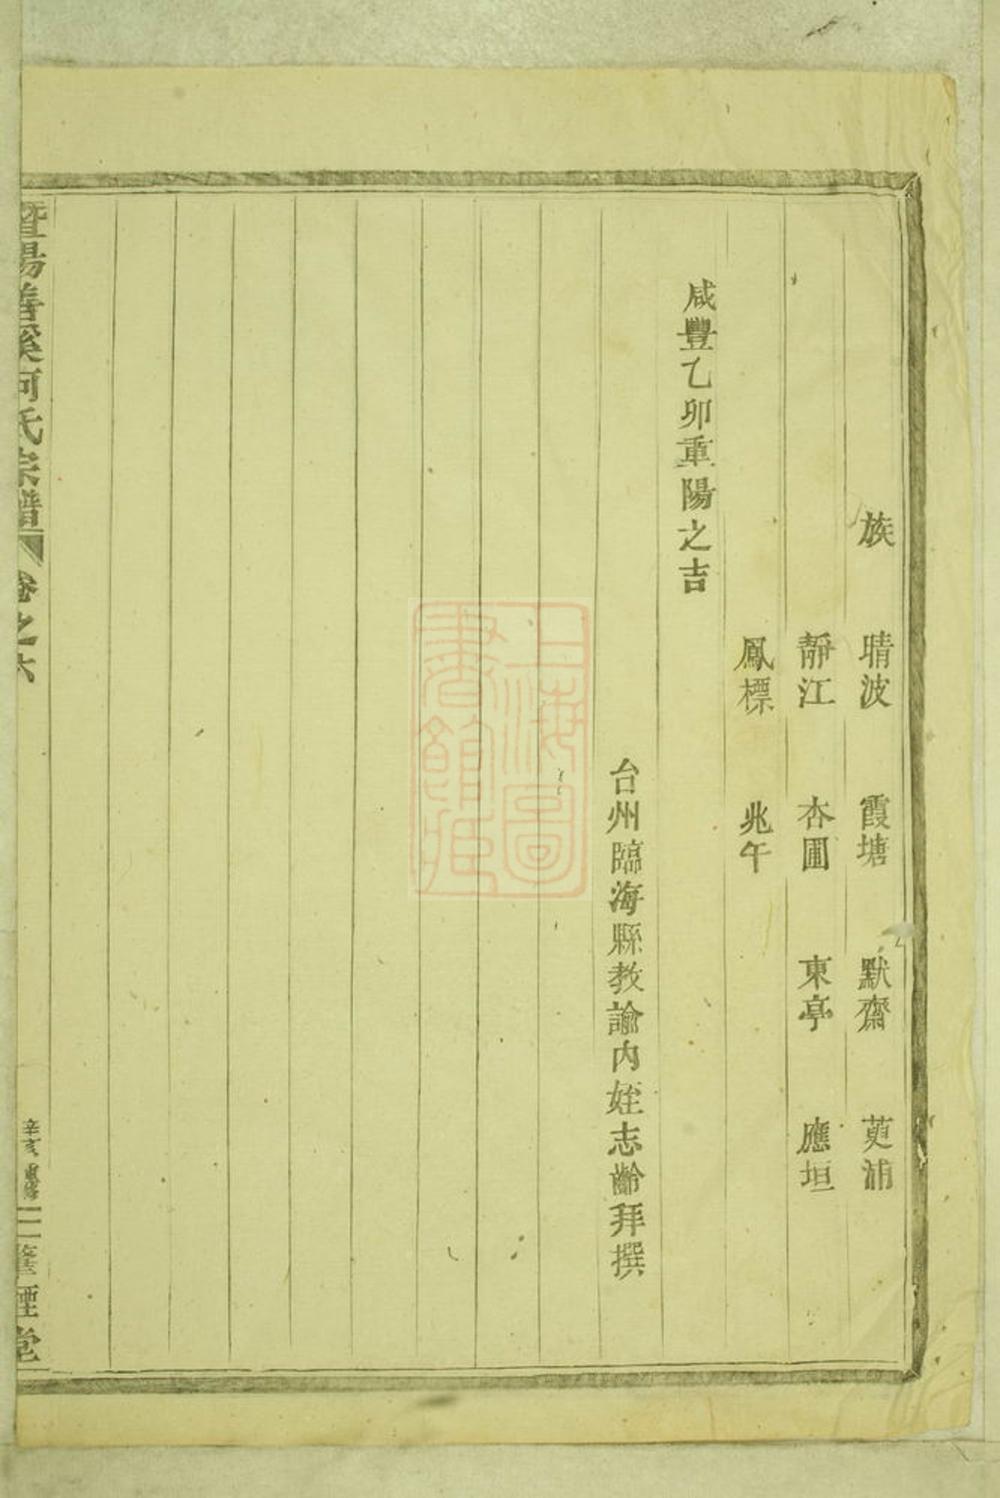 族　晴波　霞塘　默齋　萸浦
靜江　杏圃　東亭　應垣
鳳標　兆午
咸豐乙卯重陽之吉
台州臨海縣教諭内姪志齡拜撰
暨陽善溪何氏宗譜　卷之六　辛亥重修　筆煙堂
上海圖書館藏